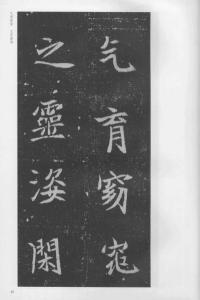 气育窈窕
之靈姿閑